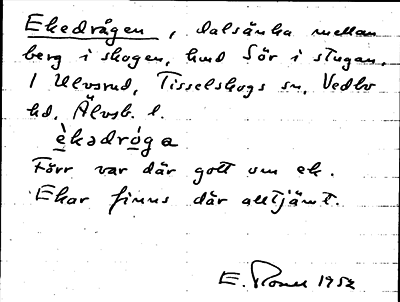 Ekedrågen, dalsänka mellan
berg i skogen, hmd Sör i stugan,
1 Ulvsrud, Tisselskogs sn, Vedbo
hd, Älvsb. l.
èkədróga
Förr var där gott om ek.
Ekar finns där alltjämt.
E. 1952